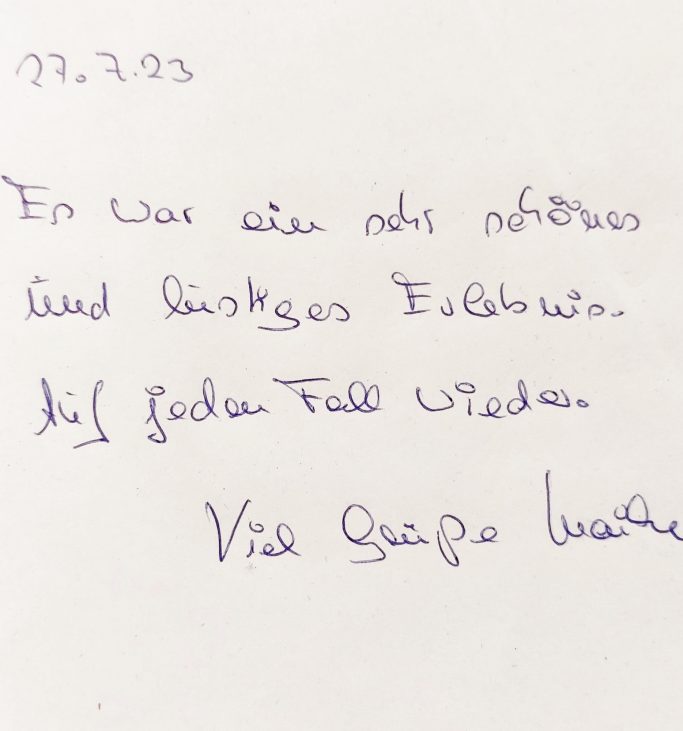 27.7.23
Es war ein sehr schönes
und lustiges Erlebnis.
Auf jeden Fall wieder.
Viel Grüße